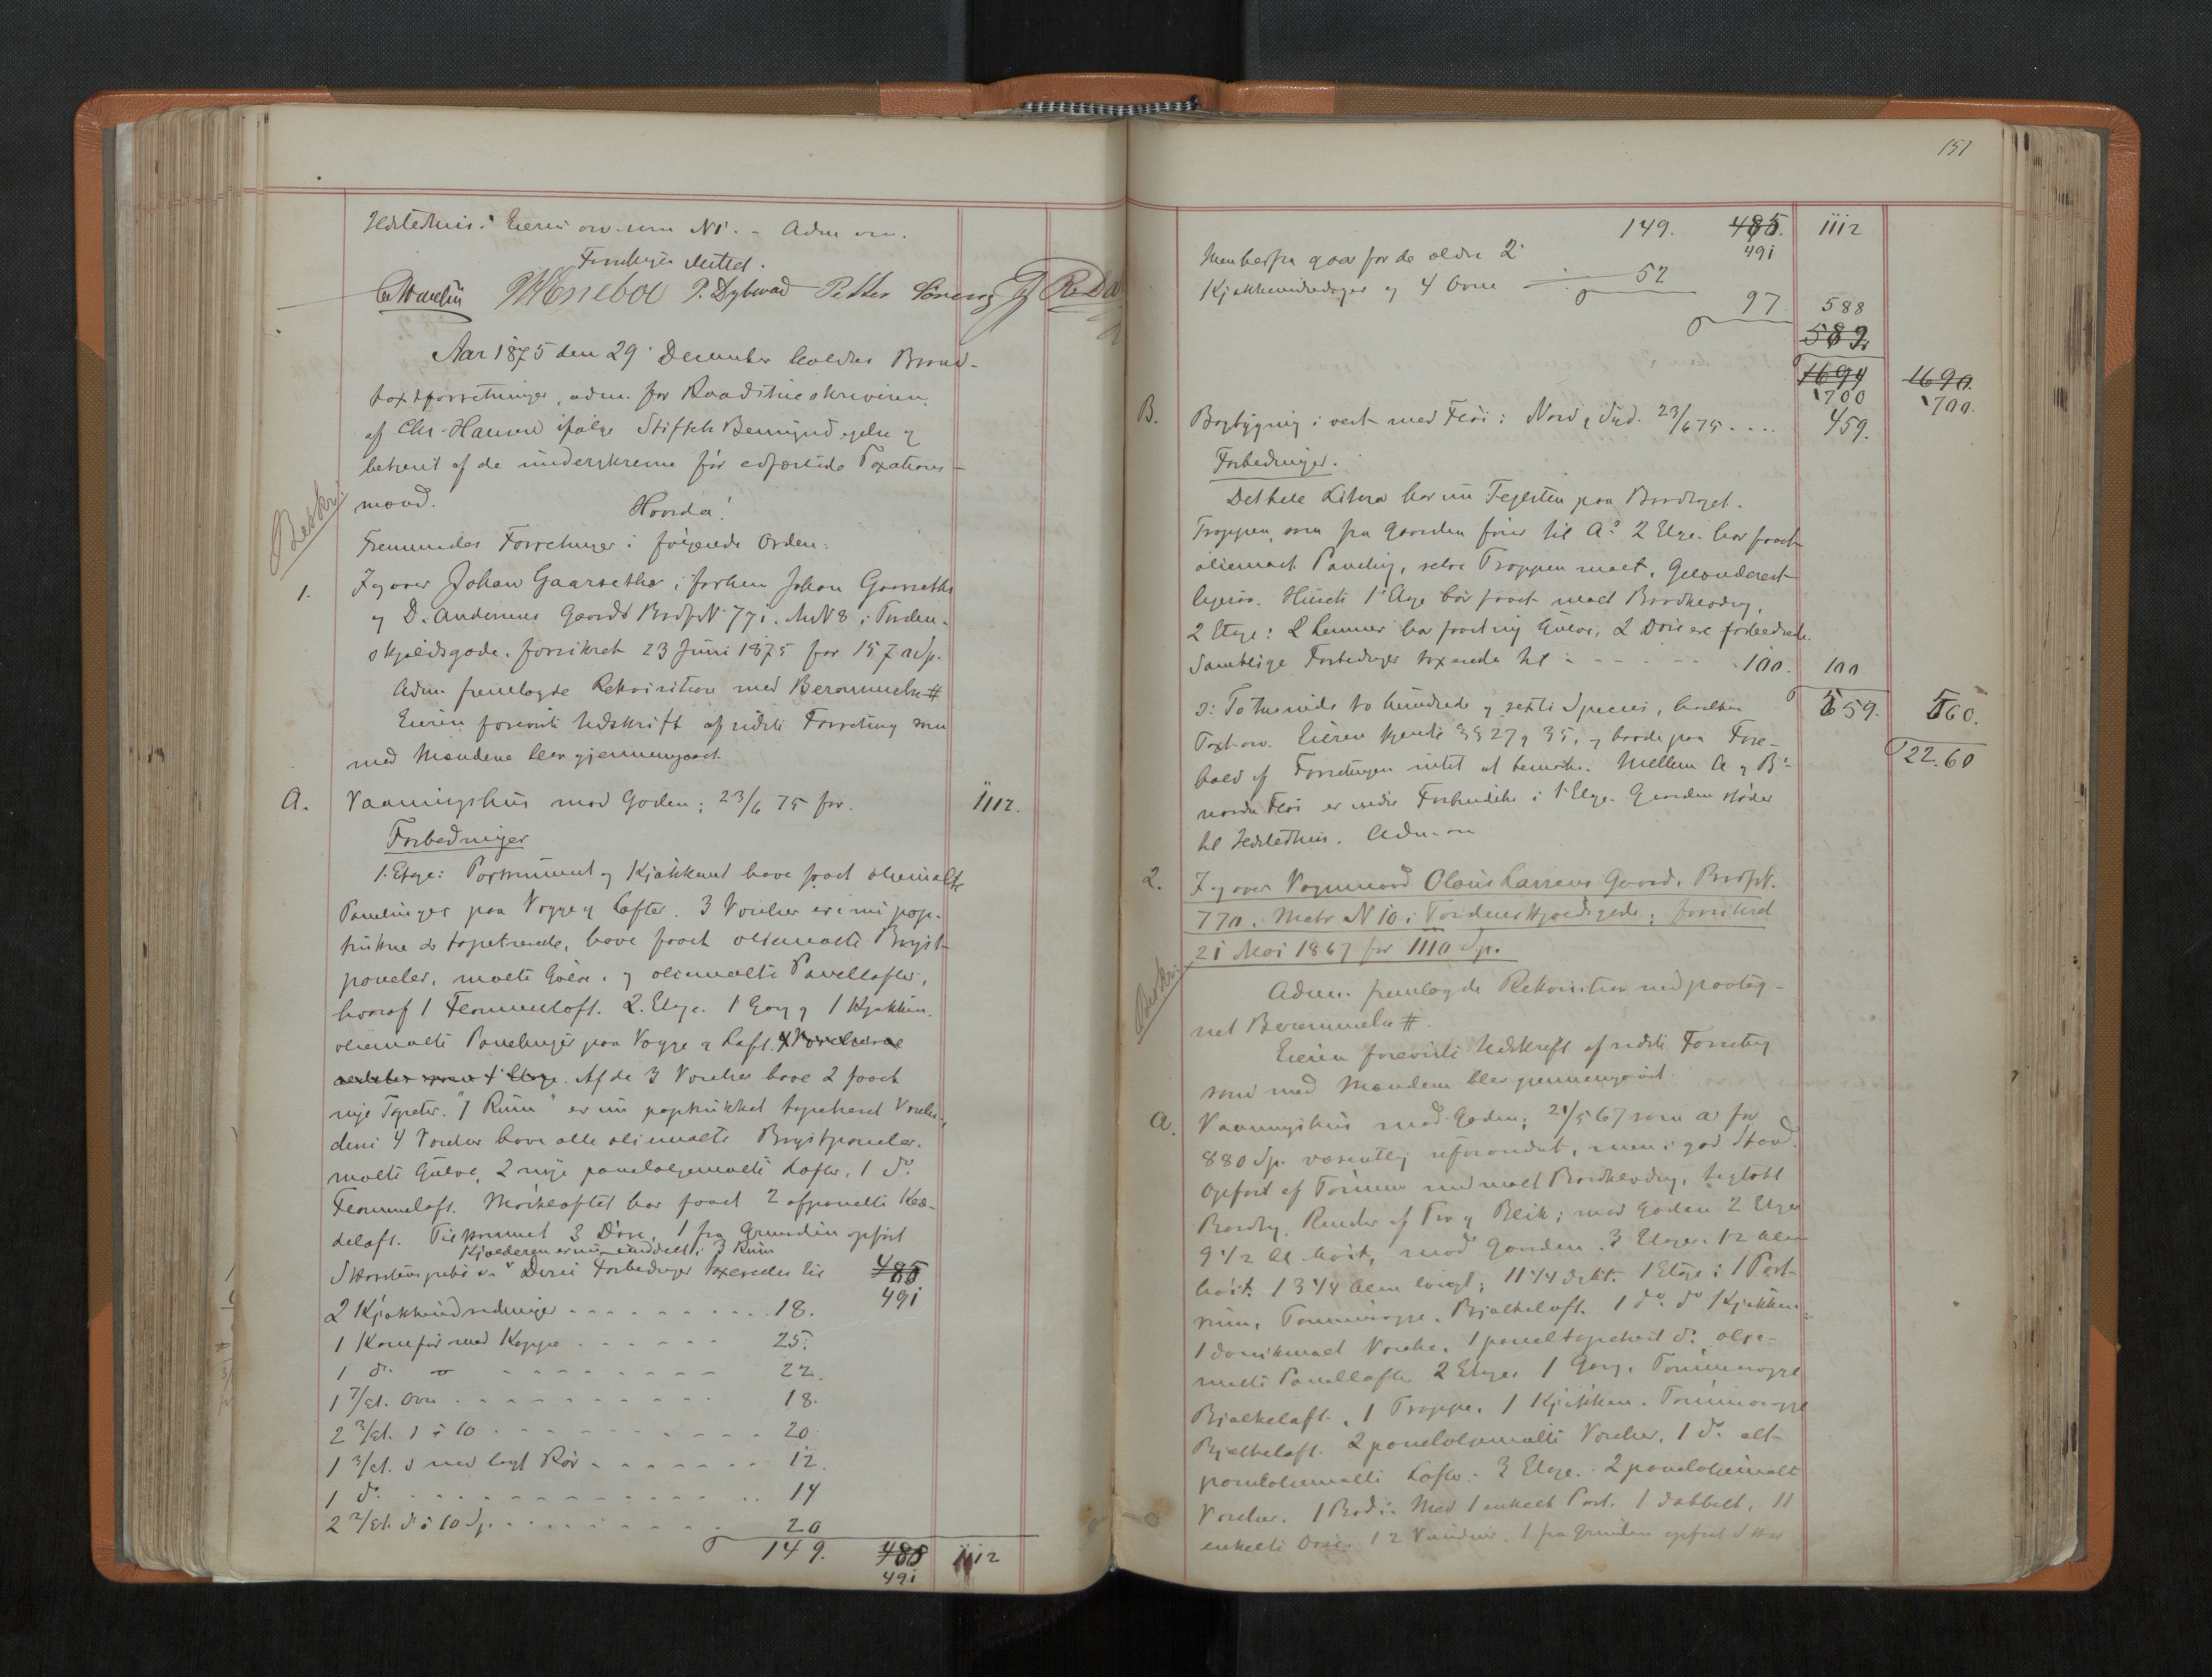 Hestethuis. Eieren ov. som N1. - Adm ov.
Forretningen sluttet.
P. Dybwad Petter Sørensg
Aar 1875 den 29 December holdtes Brand-
taxtforretninger, adm. for Raadstueskriveren
af Chr. Hansen ifølge Stiftets Bemyndigelse og
betjent af de underskrevne før edfæstede Taxations-
mænd.
Hvorda!
Fremmedes Forretninger i følgende Orden:
Beskr.
1.
Johan Gaarsether, forhen Johan Gaarsether
og D. Andersens Gaard Brdp N 771. M N 8 i Torden-
skjoldsgade. forsikret 23 Juni 1875 for 1571 Sp.
Adm. fremlagde Rekvisition med Berammelse #
Eieren foreviste Udskrift af sidste Forretning som
med Mændene blev gjennemgaaet.
A.
Vaaningshus mod Gaden; 23/6 75 for.
1112.
Forbedringer
1. Etage: Portrummet og Kjøkkenet have faaet oliemalte
Panelinger paa Vægge og Lofter. 3 Værelser ere nu pap-
trukne & tapetserede, have faaet oliemalte Bryst-
paneler, malte Gulve. og oliemalte Panellofter,
hvoraf 1 Flammeloft. 2. Etage. 1 Gang og 1 Kjøkken.
oliemalte Panelinger paa Vægge og Loft. 4 Værelser
1 Etage. Af de 3 Værelser have 2 faaet
nye Tapeter. "1 Rum" er nu paptrukket tapetseret Værelse,
disse 4 Værelser have alle oliemalte Brystpaneler.
malte Gulve, 2 nye paneloljemalte Lofter, 1 do
Flammeloft. Mørkeloftet har faaet 2 afpanelte
Tilkommet 3 Døre, 1 fra Grunden opført
Kjælderen er nu inddelt i 3 Rum
Skorstenspibe Disse Forbedringer taxeredes til 485
491
2 Kjøkkenindredninger - - - - - - - - - 18.
1 Komfur med Kappe - - - - - - 25.
1 do - - - - - - - - - 22.
1 7/Et. Ovn - - - - - - - - - 18.
2 3/Et. à 10 - - - - - - - - - 20
1 3/Et. med lagt Rør - - - - - - - 12.
1 do - - - - - - - - - - - 14
2 2/Et. à 10 Sp. - - - - - - - - 20
149. 485 1112
491
151
149. 485. 1112
491
Men herfra gaar for de ældre 2
Kjøkkenindredninger og 4 Ovne - 52
97 588
582
1694 1690.
1700 1700.
B.
Bagbygning i vest med Fløi i Nord & Syd. 23/6 75 .... 459.
Forbedringer.
Det hele Litera har nu Teglsten paa Bordtaget.
Trappen, som fra Gaarden fører til A's 2 Etage. har faaet
oliemalt Paneling, selve Trappen malt, Gelænderet
ligesaa. Husets 1 Etage har faaet malt Bordklædng,
2 Etage: 2 Kammer har faaet ny Gulve, 2 Døre ere forbedrede.
Samtlige Forbedringer taxerede til - - - - - - 100. 100
559. 560.
2260
ɔ: To tusinde to hundrede og sexti Species, hvilken
Taxt ov. Eieren kjendte §§ 27 & 35, og havde paa Fore-
hold af Forretningen intet at bemærke. Mellem A & B's
nordre Fløi er indre Forbindelse i 1 Etage. Gaarden støder
til Hestethuis. Adm. ov
2.
over Vognmand Olaus Larsens Gaard. Brdp N.
770. Matr N 10 i Tordenskjoldsgade; forsikret
21 Mai 1867 for 1110 Sp.
Beskr.
Adm. fremlagde Rekvisition med paateg-
net Berammelse #.
Eieren foreviste Udskrift af sidste Forretning
som med Mændene blev gjennemgaaet.
a.
Vaaningshus mod Gaden; 21/5 67 som a for
880 Sp. væsentlig uforandret, men i god Stand.
Opført af Tømmer med malt Bordklædng, teglstent
Bordtag. Render af Træ og Blik; mod Gaden 2 Etager
9 1/2 Al. høit, mod Gaarden 3 Etager. 12 Alen
høit. 13 3/4 Alen langt; 11 1/4 dybt. 1 Etage: 1 Port-
rum, Tømmervægge. Bjælkeloft. 1 do. do 1 Kjøkken.
1 Værelse, 1 paneltapetseret do. olje-
malte Panellofter. 2 Etage. 1 Gang. Tømmervægge
Bjælkeloft. 1 Trappe. 1 Kjøkken. Tømmervægge
Bjælkeloft. 2 paneloljemalte Værelser. 1 do. alt
paneloliemalte Lofter. 3 Etage. 2 paneloliemalt
Værelser. 1 Bod. Med 1 enkelt Port. 1 dobbelt, 11
enkelte Døre. 12 Vinduer. 1 fra Grunden opført Skor